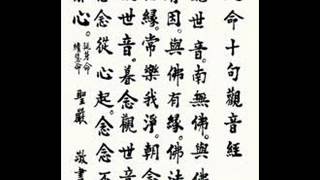 延命十句觀音經
觀世音。南無佛。與佛
有因。與佛有緣。佛法
相緣。常樂我淨。朝念
觀世音。暮念觀世音
念念從心起。念念不
離心。延身命
續慧命
聖嚴 敬書